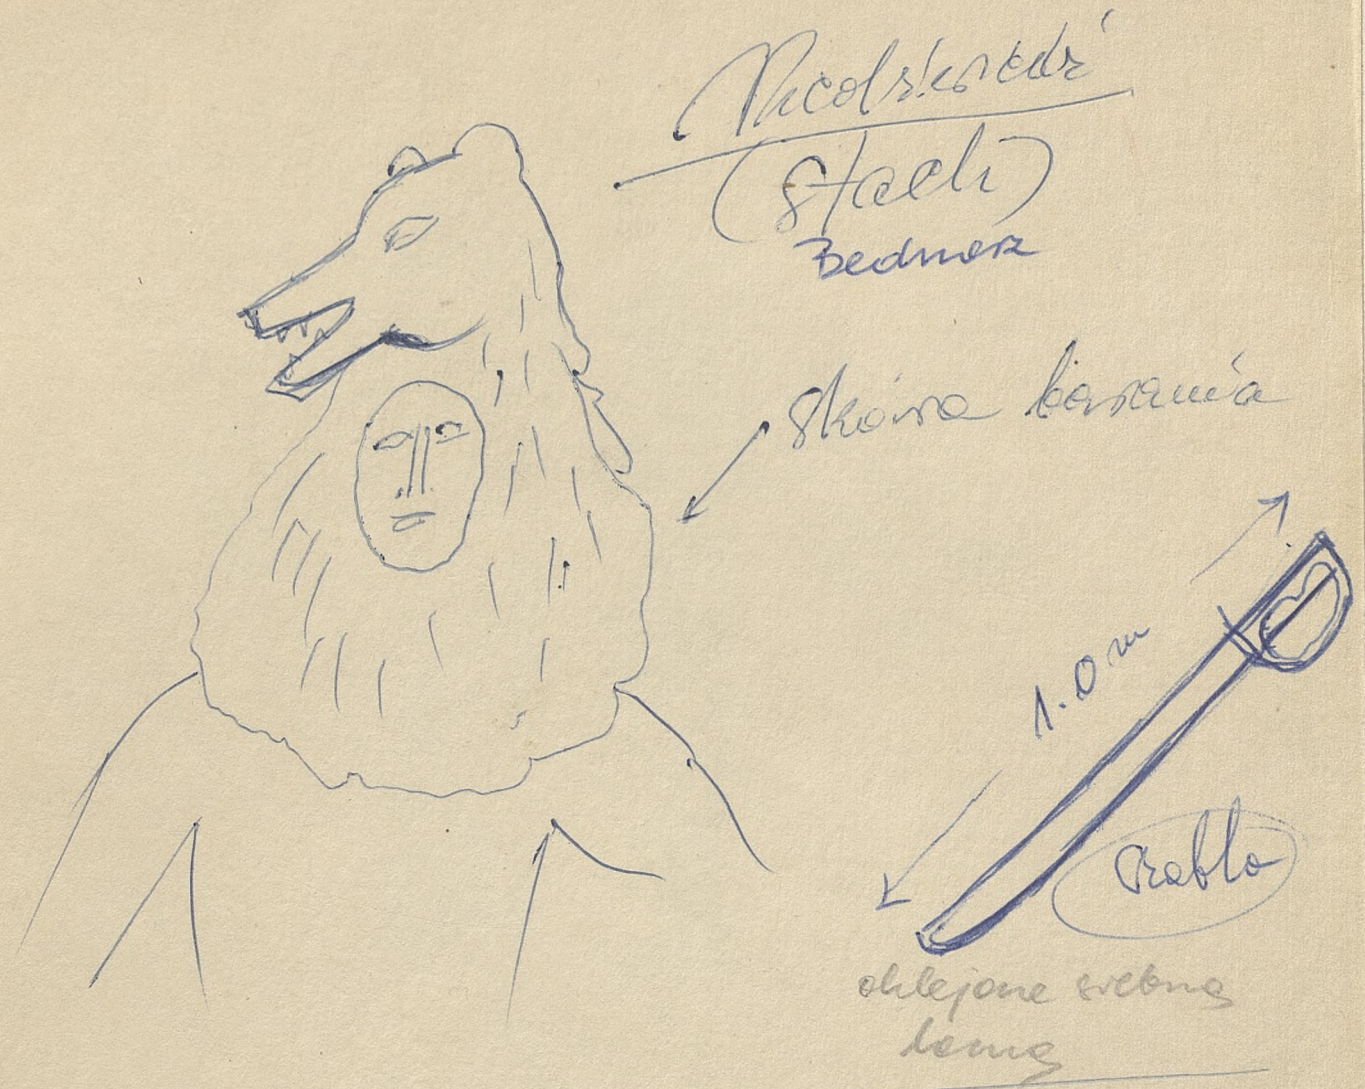 Niedźwiedź
(Stach)
Bednarz
skóra barania
1.0 m
szabla
oklejone srebrną
lamą